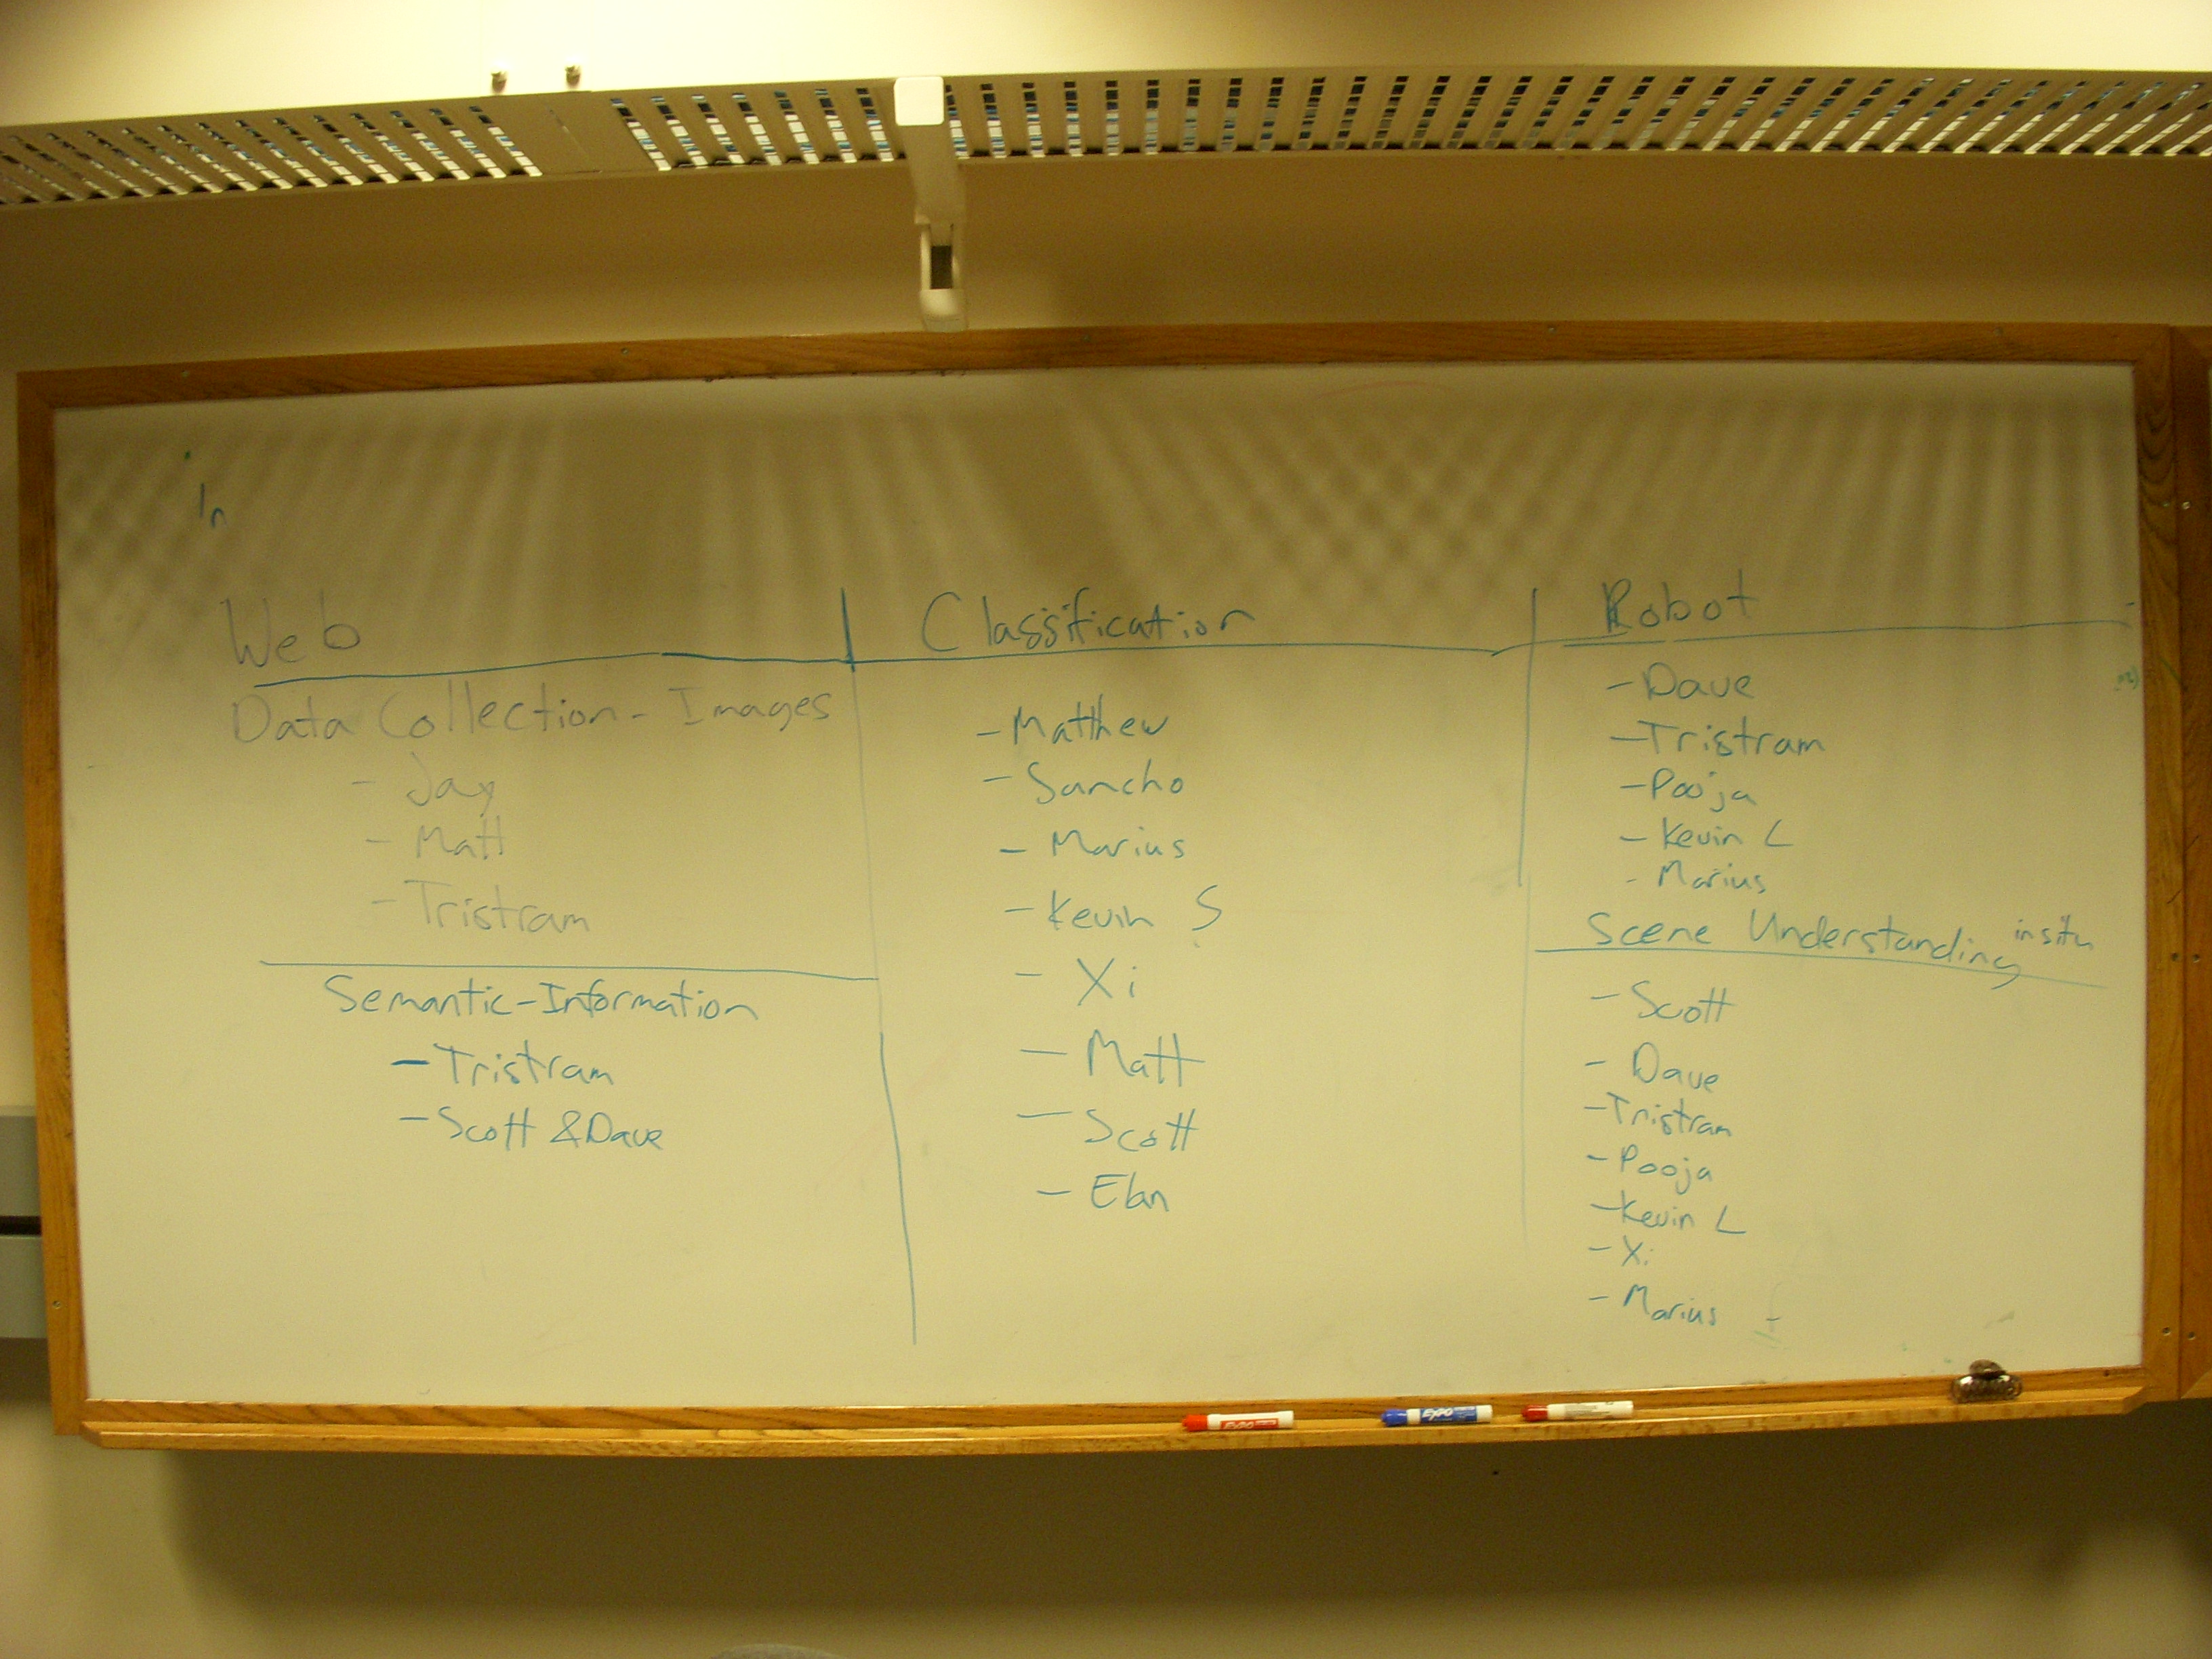 In
Web
Data Collection - Images
- Jay
- Matt
- Tristram
Semantic-Information
- Tristram
- Scott & Dave
Classification
- Matthew
- Sancho
- Marius
- Kevin S
- Xi
- Matt
- Scott
- Elan
Robot
- Dave
- Tristram
- Pooja
- Kevin L
- Marius
Scene Understanding in situ
- Scott
- Dave
- Tristram
- Pooja
- Kevin L
- Xi
- Marius
EXPO
EXPO